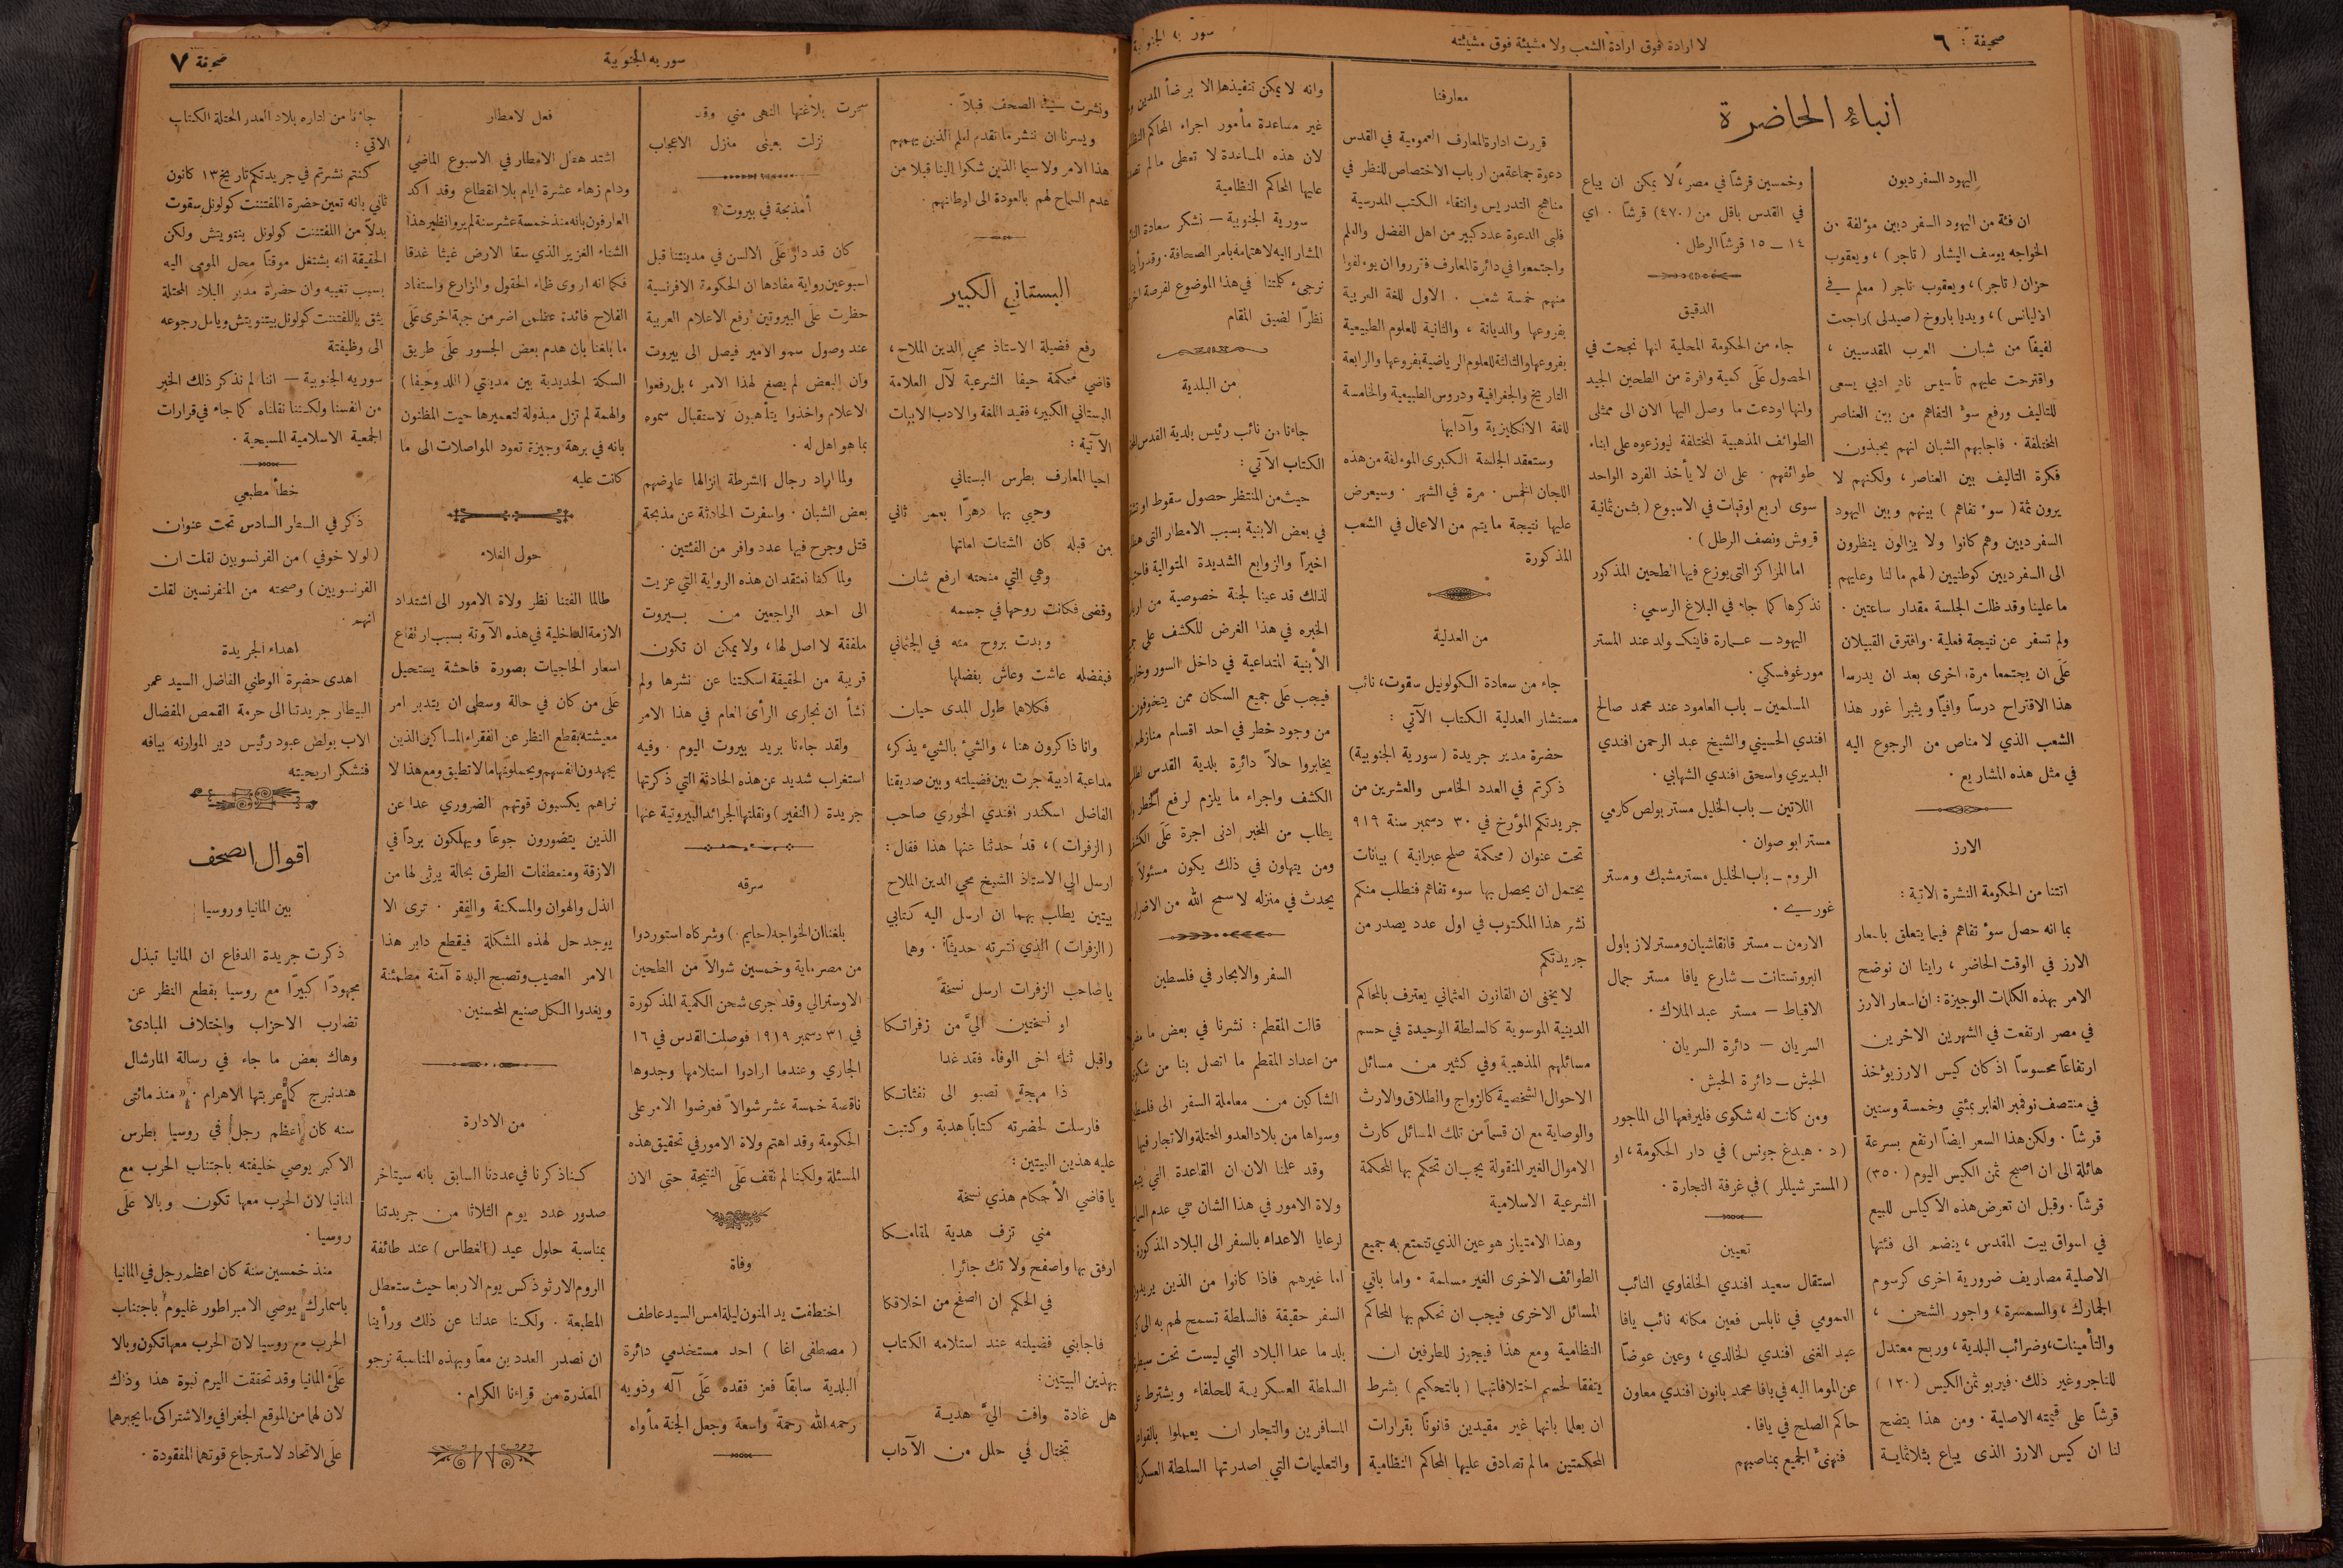 صحيفة : ٦
لا ارادة فوق ارادة الشعب ولا مشيئة فوق مشيئته
سورية الجنوبية
انباء الحاضرة
اليهود السفرديون
ان فئة من اليهود السفرديين مؤلفة من
الخواجه يوسف اليشار ( تاجر ) ، ويعقوب
حزان ( تاجر ) ، ويعقوب تاجر ( معلم في
الاليانس ) ، ويديا باروخ ( صيدلي ) راجعت
لفيفاً من شبان العرب المقدسيين ،
واقترحت عليهم تأسيس ناد ادبي يسعى
للتاليف ورفع سوء التفاهم من بين العناصر
المختلفة . فاجابهم الشبان انهم يحبذون
فكرة التاليف بين العناصر ، ولكنهم لا
يرون ثمة ( سوء تفاهم ) بينهم وبين اليهود
السفرديين وهم كانوا ولا يزالون ينظرون
الى السفرديين كوطنيين ( لهم ما لنا وعليهم
ما علينا وقد ظلت الجلسة مقدار ساعتين .
ولم تسفر عن نتيجة فعلية . وافترق القبيلان
عَلَى ان يجتمعا مرة اخرى بعد ان يدرسا
هذا الاقتراح درساً وافياً ويثبرا غور هذا
الشعب الذي لا مناص من الرجوع اليه
في مثل هذه المشاريع .
الارز
اتتنا من الحكومة النشرة الاتية :
بما انه حصل سوء تفاهم فيما يتعلق باسعار
الارز في الوقت الحاضر ، راينا ان نوضح
الامر بهذه الكلمات الوجيزة : ان اسعار الارز
في مصر ارتفعت في الشهرين الاخرين
ارتفاعاً محسوساً اذ كان كيس الارز يؤخذ
في منتصف نوفمبر الغابر بمئتي وخمسة وستين
قرشاً . ولكن هذا السعر ايضاً ارتفع بسرعة
هائلة الى ان اصبح ثمن الكيس اليوم ( ٣٥٠ )
قرشاً . وقبل ان تعرض هذه الاكياس للبيع
في اسواق بيت المقدس ، ينضم الى فئتها
الاصلية مصاريف ضرورية اخرى كرسوم
الجمارك ، والسمسرة ، واجور الشحن ،
والتأمينات ، وضرائب البلدية ، وربح معتدل
للتاجر وغير ذلك . فيربو ثمن الكيس ( ١٢٠ )
قرشاً على قيمته الاصلية . ومن هذا يتضح
لنا ان كيس الارز الذي يباع بثلاثماية
وخمسين قرشاً في مصر ، لا يمكن ان يباع
في القدس باقل من ( ٤٧٠ ) قرشاً . اي
١٤ ــ ١٥ قرشاً الرطل .
الدقيق
جاء من الحكومة المحلية انها نجحت في
الحصول عَلَى كمية وافرة من الطحين الجيد
وانها اودعت ما وصل اليها الان الى ممثلي
الطوائف المذهبية المختلفة ليوزعوه على ابناء
طوائفهم . على ان لا يأخذ الفرد الواحد
سوى اربع اوقيات في الاسبوع ( بثمن ثمانية
قروش ونصف الرطل ) .
اما المراكز التي يوزع فيها الطحين المذكور
نذكرها كما جاء في البلاغ الرسمي :
اليهود ــ عمارة فاينكــ ولد عند المستر
مورغوفسكي .
المسلمين ــ باب العامود عند محمد صالح
افندي الحسيني والشيخ عبد الرحمن افندي
البديري واسحق افندي الشهابي .
اللاتين ــ باب الخليل مستر بولص كارمي
مستر ابو صوان .
الروم ــ باب الخليل مستر مشبك ومستر
غوري .
الارمن ــ مستر قانقاشيان ومستر لاز باول
البروتستانت ــ شارع يافا مستر جمال
الاقباط ــ مستر عبد الملاك .
السريان ــ دائرة السريان .
الحبش ــ دائرة الحبش .
ومن كانت له شكوى فليرفعها الى الماجور
( د . هيدغ جونس ) في دار الحكومة ، او
( المستر شيللر ) في غرفة التجارة .
تعيين
استقال سعيد افندي الخلفاوي النائب
العمومي في نابلس فعين مكانه نائب يافا
عبد الغني افندي الخالدي ، وعين عوضاً
عن الموما اليه في يافا محمد بانون افندي معاون
حاكم الصلح في يافا .
فنهنئ الجميع بمناصبهم
معارفنا
قررت ادارة المعارف العمومية في القدس
دعوة جماعة من ارباب الاختصاص للنظر في
مناهج التدريس وانتقاء الكتب المدرسية
فلبى الدعوة عدد كبير من اهل الفضل والعلم
واجتمعوا في دائرة المعارف فقرروا ان يؤلفوا
منهم خمسة شعب . الاول للغة العربية
بفروعها والديانة ، والثانية للعلوم الطبيعية
بفروعها والثالثة للعلوم الرياضية بفروعها والرابعة
التاريخ والجغرافية ودروس الطبيعية والخامسة
للغة الانكليزية وآدابها
وستعقد الجلسة الكبرى المؤلفة من هذه
اللجان الخمس . مرة في الشهر . وسيعرض
عليها نتيجة ما يتم من الاعمال في الشعب
المذكورة
من العدلية
جاء من سعادة الكولونيل سقوت ، نائب
مستشار العدلية الكتاب الآتي :
حضرة مدير جريدة ( سورية الجنوبية )
ذكرتم في العدد الخامس والعشرين من
جريدتكم المؤرخ في ٣٠ دسمبر سنة ٩١٩
تحت عنوان ( محكمة صلح عبرانية ) بيانات
يحتمل ان يحصل بها سوء تفاهم فنطلب منكم
نشر هذا المكتوب في اول عدد يصدر من
جريدتكم
لا يخفى ان القانون العثماني يعترف بالمحاكم
الدينية الموسوية كالسلطة الوحيدة في حسم
مسائلهم المذهبية وفي كثير من مسائل
الاحوال الشخصية كالزواج والطلاق والارث
والوصاية مع ان قسماً من تلك المسائل كارث
الاموال الغير المنقولة يجب ان تحكم بها المحكمة
الشرعية الاسلامية
وهذا الامتياز هو عين الذي تتمتع به جميع
الطوائف الاخرى الغير مسلمة . واما باقي
المسائل الاخرى فيجب ان تحكم بها المحاكم
النظامية ومع هذا فيجوز للطرفين ان
يتفقا لحسم اختلافاتهما ( بالتحكيم ) بشرط
ان يعلما بانهما غير مقيدين قانوناً بقرارات
المحكمتين ما لم تصادق عليها المحاكم النظامية
وانه لا يمكن تنفيذها الا برضأ المدين
غير مساعدة مأمور اجراء المحاكم
لان هذه المساعدة لا تعطى ما لم
عليها المحاكم النظامية
سورية الجنوبية ــ نشكر سعادة
المشار اليه لاهتمامه بامر الصحافة .
نرجيء كلمتنا في هذا الموضوع لفرصة
نظراً لضيق المقام
من البلدية
جاءنا من نائب رئيس بلدية القدس
الكتاب الآتي :
حيث من المنتظر حصول سقوط او
في بعض الابنية بسبب الامطار التي
اخيراً والزوابع الشديدة المتوالية
لذلك قد عينا لجنة خصوصية من
الخبره في هذا الغرض للكشف على
الأبنية المتداعية في داخل السور
فيجب عَلَى جميع السكان ممن يتخوفون
من وجود خطر في احد اقسام منازلهم
يخابروا حالاً دائرة بلدية القدس
الكشف واجراء ما يلزم لرفع الخطر
يطلب من المخبر ادنى اجرة عَلَى
ومن يتهاون في ذلك يكون مسئولاً
يحدث في منزله لا سمح الله من الاضرار
السفر والاتجار في فلسطين
قالت المقطم : نشرنا في بعض ما
من اعداد المقطم ما اتصل بنا من
الشاكين من معاملة السفر الى
وسواها من بلاد العدو المحتلة والاتجار فيها
وقد علمنا الان ان القاعدة التي
ولاة الامور في هذا الشان هي عدم
لرعايا الاعداء بالسفر الى البلاد المذكورة
اما غيرهم فاذا كانوا من الذين
السفر حقيقة فالسلطة تسمح لهم به الى
بلد ما عدا البلاد التي ليست تحت
السلطة العسكرية للحلفاء ويشترط
المسافرين والتجار ان يعملوا
والتعليمات التي اصدرتها السلطة
سورية الجنوبية
صحيفة ٧
ونشرت في الصحف قبلاً .
ويسرنا ان ننشر ما تقدم ليلم الذين يهمهم
هذا الامر ولا سيما الذين شكوا الينا قبلا من
عدم السماح لهم بالعودة الى اوطانهم .
البستاني الكبير
رفع فضيلة الاستاذ محي الدين الملاح ،
قاضي محكمة حيفا الشرعية لآل العلامة
البستاني الكبير ، فقيد اللغة والادب الابيات
الآتية :
احيا المعارف بطرس البستاني
وحيي بها دهراً بعمر ثاني
من قبله كان الشتات اماتها
وهي التي منحته ارفع شان
وقضى فكانت روحها في جسمه
وبدت بروح منه في الجثماني
فبفضله عاشت وعاش بفضلها
فكلاهما طول المدى حيان
وانا ذاكرون هنا ، والشيء بالشيء يذكر ،
مداعبة ادبية جرت بين فضيلته وبين صديقنا
الفاضل اسكندر افندي الخوري صاحب
( الزفرات ) ، قد حدثنا عنها هذا فقال :
ارسل الي الاستاذ الشيخ محي الدين الملاح
بيتين يطلب بهما ان ارسل اليه كتابي
( الزفرات ) الذي نشرته حديثاً . وهما
يا صاحب الزفرات ارسل نسخة
او نسختين اليَّ من زفراتكا
واقبل ثناء اخى الوفاء فقد غدا
ذا مهجة تصبو الى نفثاتكا
فارسلت لحضرته كتاباً هدية وكتبت
عليه هذين البيتين :
يا قاضي الأحكام هذي نسخة
مني تزف هدية لمقامكا
ارفق بها واصفح ولا تك جائرا
في الحكم ان الصفح من اخلاقكا
فاجابني فضيلته عند استلامه الكتاب
بهذين البيتين :
هل غادة وافت اليَّ هدية
تختال في حلل من الآداب
سحرت بلاغتها النهى مني وقد
نزلت بعيني منزل الاعجاب
أمذبحة في بيروت ؟
كان قد دار عَلَى الالسن في مدينتنا قبل
اسبوعين رواية مفادها ان الحكومة الافرنسية
حظرت عَلَى البيروتيين رفع الاعلام العربية
عند وصول سمو الامير فيصل الى بيروت
وان البعض لم يصغ لهذا الامر ، بل رفعوا
الاعلام واخذوا يتأهبون لاستقبال سموه
بما هو اهل له .
ولما اراد رجال الشرطة انزالها عارضهم
بعض الشبان . واسفرت الحادثة عن مذبحة
قتل وجرح فيها عدد وافر من الفئتين .
ولما كنا نعتقد ان هذه الرواية التي عزيت
الى احد الراجعين من بيروت
ملفقة لا اصل لها ، ولا يمكن ان تكون
قريبة من الحقيقة اسكتنا عن نشرها ولم
نشأ ان نجاري الرأى العام في هذا الامر
ولقد جاءنا بريد بيروت اليوم . وفيه
استغراب شديد عن هذه الحادثة التي ذكرتها
جريدة ( النفير ) ونقلتها الجرائد البيروتية عنها
سرقه
بلغنا ان الخواجه ( حاييم . ) وشركاه استوردوا
من مصر ماية وخمسين شوالاً من الطحين
الاوسترالي وقد جرى شحن الكمية المذكورة
في ٣١ دسمبر ١٩١٩ فوصلت القدس في ١٦
الجاري وعندما ارادوا استلامها وجدوها
ناقصة خمسة عشر شوالاً فعرضوا الامر على
الحكومة وقد اهتم ولاة الامور في تحقيق هذه
المسئلة ولكننا لم نقف عَلَى النتيجة حتى الان
وفاة
اختطفت يد المنون ليلة امس السيد عاطف
( مصطفى اغا ) احد مستخدمي دائرة
البلدية سابقاً فعز فقده عَلَى آله وذويه
رحمه الله رحمةً واسعة وجعل الجنة مأواه
فعل الامطار
اشتد هطل الامطار في الاسبوع الماضي
ودام زهاء عشرة ايام بلا انقطاع وقد اكد
العارفون بانه منذ خمسة عشر سنة لم يروا نظير هذا
الشتاء الغزير الذي سقا الارض غيثا غدقا
فكما انه اروى ظماء الحقول والمزارع واستفاد
الفلاح فائدة عظمى اضر من جهة اخرى عَلَى
ما بلغنا بان هدم بعض الجسور عَلَى طريق
السكة الحديدية بين مدينتي ( اللد وحيفا )
والهمة لم تزل مبذولة لتعميرها حيت المظنون
بانه في برهة وجيزة تعود المواصلات الى ما
كانت عليه
حول الغلاء
طالما الفتنا نظر ولاة الامور الى اشتداد
الازمة الداخلية في هذه الآونة بسبب ارتفاع
اسعار الحاجيات بصورة فاحشة يستحيل
عَلَى من كان في حالة وسطى ان يتدبر امر
معيشته بقطع النظر عن الفقراء المساكين الذين
يجهدون انفسهم ويحملونها ما لا تطيق ومع هذا لا
نراهم يكسبون قوتهم الضروري عدا عن
الذين يتضورون جوعاً ويهلكون برداً في
الازقة ومنعطفات الطرق بحالة يرثى لها من
الذل والهوان والمسكنة والفقر . ترى الا
يوجد حل لهذه المشكلة فيقطع دابر هذا
الامر العصيب وتصبح البلدة آمنة مطمئنة
ويغدوا الكل صنيع المحسنين
من الادارة
كنا ذكرنا في عددنا السابق بانه سيتاخر
صدور عدد يوم الثلاثا من جريدتنا
بمناسبة حلول عيد ( الغطاس ) عند طائفة
الروم الارثوذكس يوم الاربعا حيث ستعطل
المطبعة . ولكننا عدلنا عن ذلك ورأينا
ان نصدر العددين معاً وبهذه المناسبة نرجو
المعذرة من قراءنا الكرام .
جاءنا من اداره بلاد العدو المحتلة الكتاب
الاتي :
كنتم نشرتم في جريدتكم تاريخ ١٣ كانون
ثاني بانه تعين حضرة اللفتننت كولونل سقوت
بدلاً من اللفتننت كولونل بنتويتش ولكن
الحقيقة انه يشتغل موقتاً محل المومى اليه
بسبب تغيبه وان حضرة مدير البلاد المحتلة
يثق باللفتننت كولونل بيتنويتش ويامل رجوعه
الى وظيفتة
سوريه الجنوبية ــ اننا لم نذكر ذلك الخبر
من انفسنا ولكننا نقلناه كما جاء في قرارات
الجمعية الاسلامية المسيحية .
خطأ مطبعي
ذكر في السطر السادس تحت عنوان
( لولا خوفي ) من الفرنسويين لقلت ان
الفرنسويين ) وصحته من المتفرنسين لقلت
انهم .
اهداء الجريدة
اهدى حضرة الوطني الفاضل السيد عمر
البيطار جريدتنا الى حرمة القمص المفضال
الاب بولص عبود رئيس دير الموارنه بيافه
فنشكر اريحيته
اقوال الصحف
بين المانيا وروسيا
ذكرت جريدة الدفاع ان المانيا تبذل
مجهوداً كبيراً مع روسيا بقطع النظر عن
تضارب الاحزاب واختلاف المبادئ
وهاك بعض ما جاء في رسالة المارشال
هندنبرج كما عربتها الاهرام : « منذ مائتى
سنه كان اعظم رجل في روسيا بطرس
الاكبر يوصي خليفته باجتناب الحرب مع
المانيا لان الحرب معها تكون وبالا عَلَى
روسيا .
منذ خمسين سنة كان اعظم رجل في المانيا
باسمارك يوصي الامبراطور غليوم باجتناب
الحرب مع روسيا لان الحرب معها تكون وبالا
عَلَى المانيا وقد تحققت اليوم نبوة هذا وذاك
لان لهما من الموقع الجغرافي والاشتراكى ما يجبرهما
عَلَى الاتحاد لاسترجاع قوتهما المفقودة .